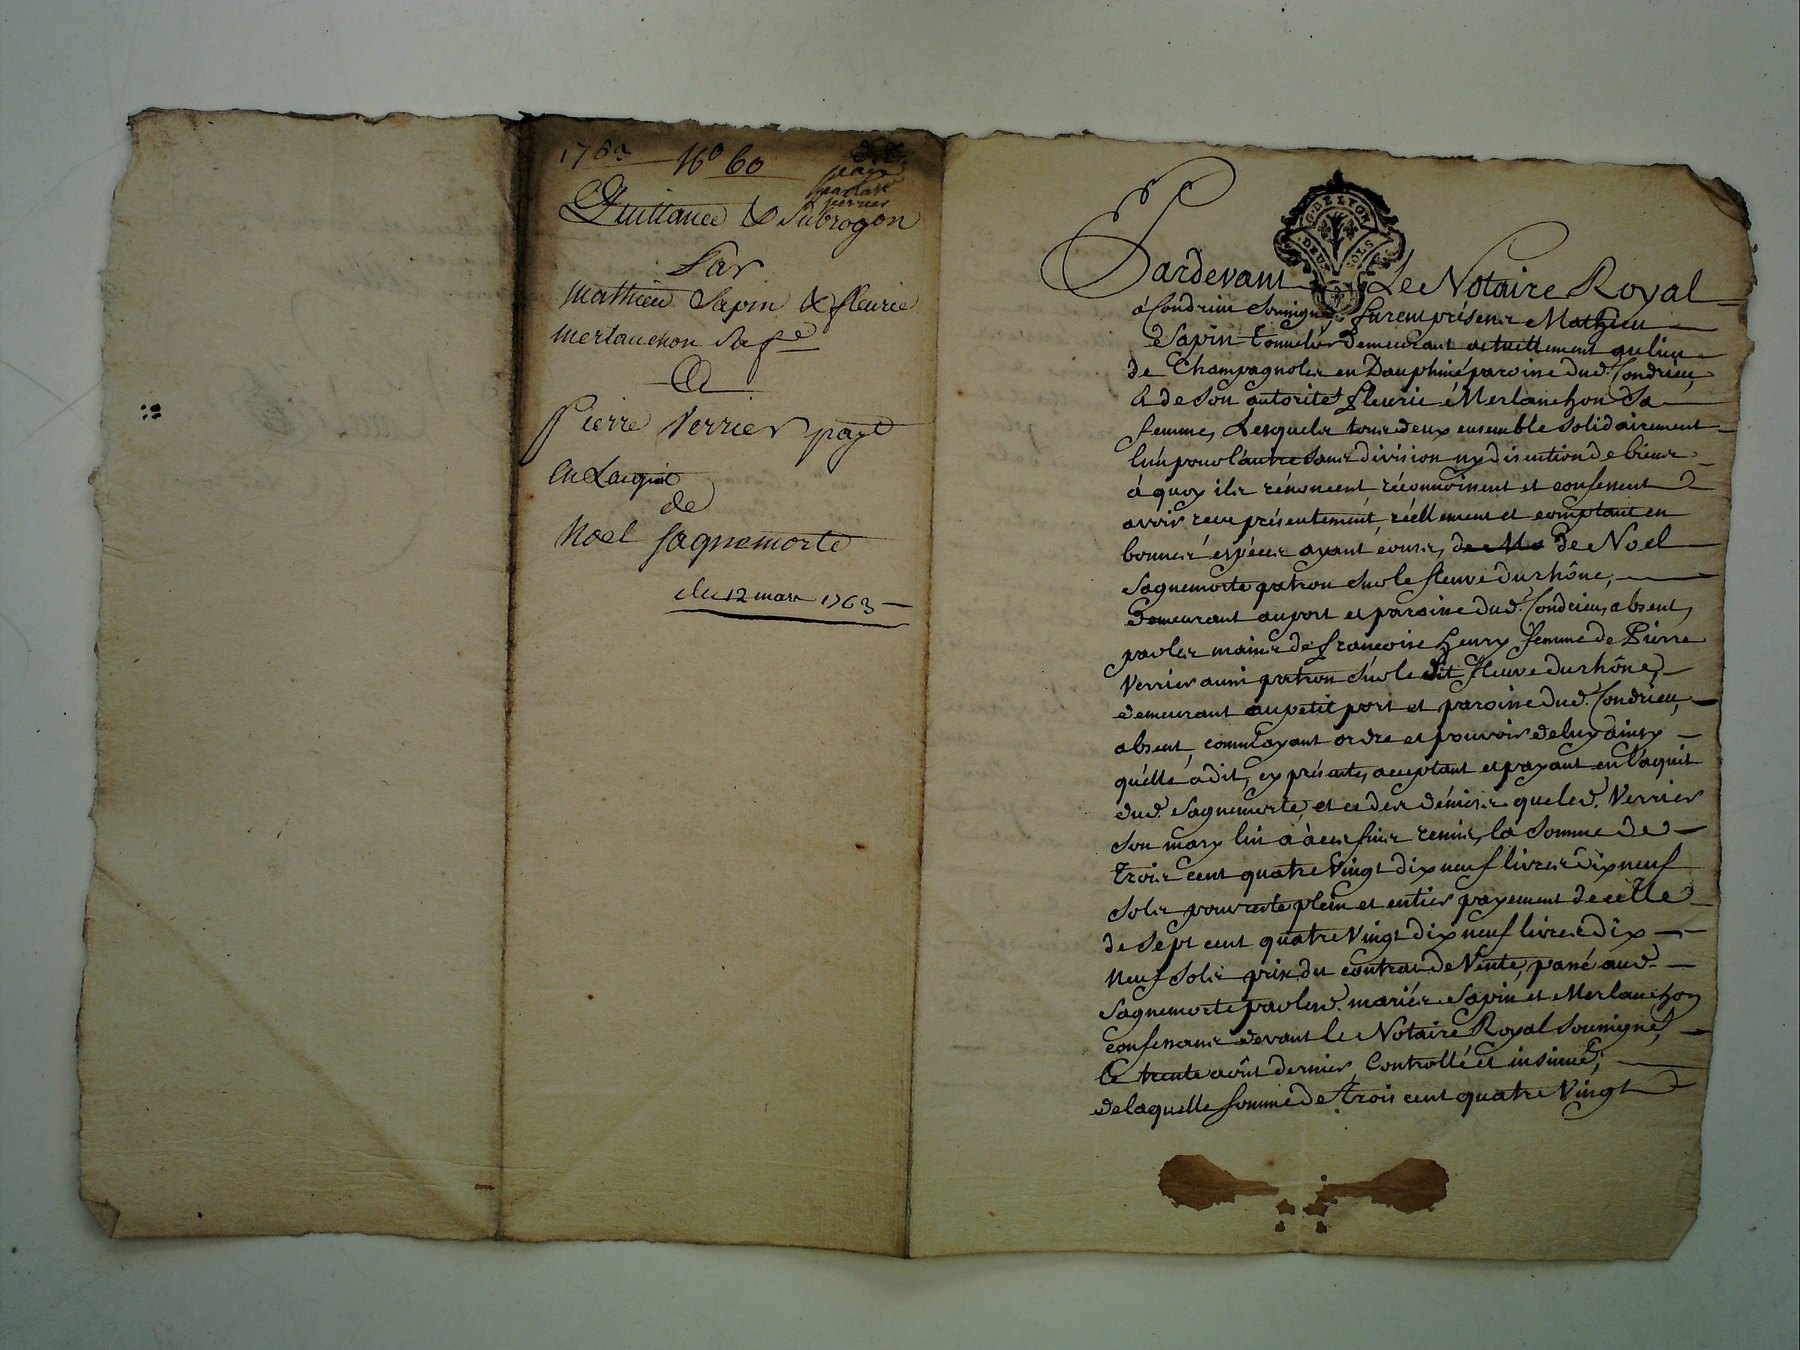 1763 No 60
Quittance & Subrogon
Par
Mathieu Sapin & fleurie
Merlanchon Sa fe
A
Pierre Verrier payt
En Lacquit
de
Noel Sagnemorte
du 12 mars 1763
G. DE LYON
DEUX SOLS
Pardevant Le Notaire Royal
à Condrieu Soussigné furent présens Mathieu
Sapin tonnelier demeurant actuellement au lieu
de Champagnoles en Dauphiné paroisse dud. Condrieu,
& de Son autorité fleurie Merlanchon Sa
femme, Lesquels tous deux ensemble Solidairement
l'un pour l'autre Sans division ny discution de biens
à quoy ils rénoncent, réconnoissent et confessent
avoir reçu présentement, réellement et comptant en
bonnes éspéces ayant cours, de Noel
Sagnemorte patron Sur le fleuve du rhône,
demeurant au port et paroisse dud. Condrieu, absent,
par les mains de françoise henry femme de Pierre
Verrier aussi patron Sur le dit fleuve du rhône,
demeurant au petit port et paroisse dud. Condrieu,
absent, comme ayant ordre et pouvoir de luy ainsy
qu'elle à dit, cy présente, acceptant et payant en l'aquit
dud. Sagnemorte, et ce des déniers que led. Verrier
Son mary lui a à ces fins remis, la Somme de
trois cent quatre Vingt dix neuf livres dix neuf
Sols pour reste plein et entier payement de celle
de Sept cent quatre Vingt dix neuf livres dix
neuf Sols prix du contrat de Vente, passé aud.
Sagnemorte par lesd. mariés Sapin et Merlanchon
confessans devant le Notaire Royal Soussigné,
le trente août dernier, Controllé et insinué;
de laquelle Somme de trois cent quatre Vingt